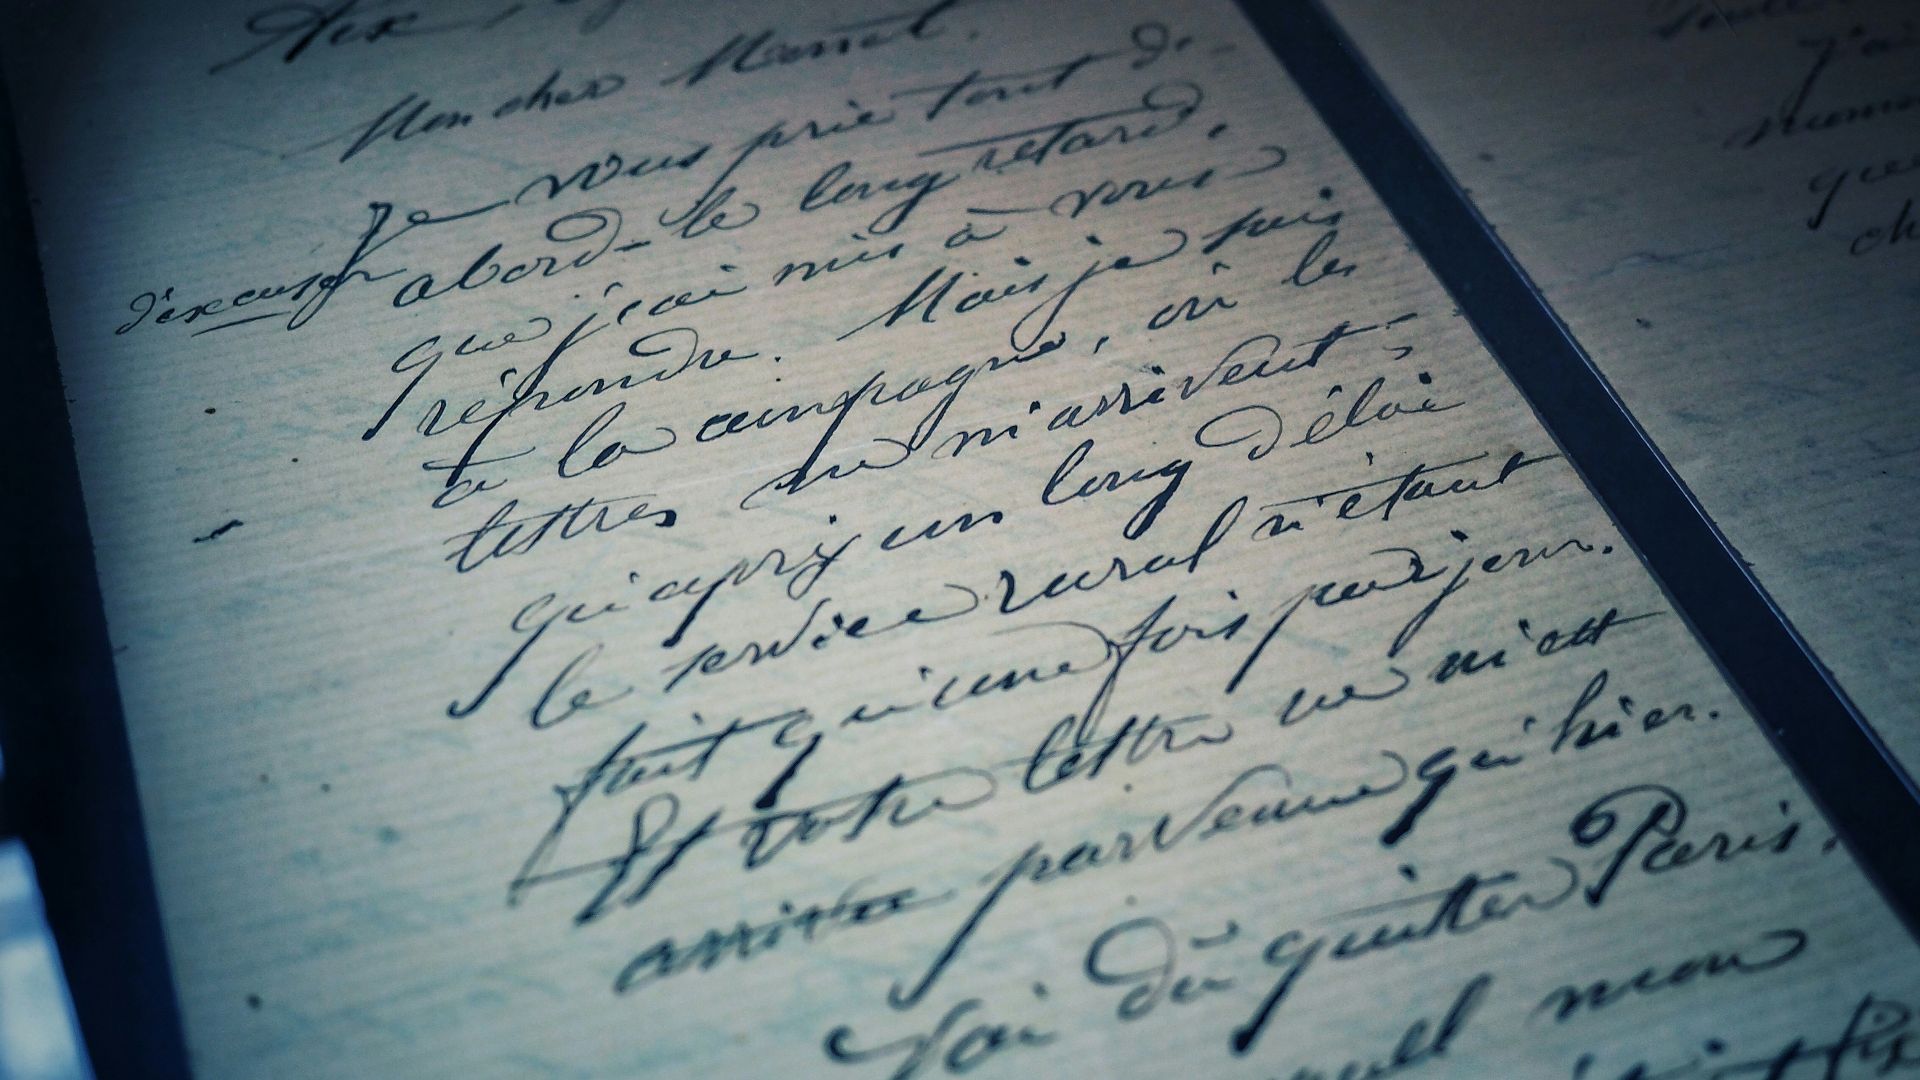 Aix
Mon cher Manet.
Je vous prie tout d'-
d'excuser abord le long retard,
que j'ai mis à vous
répondre. Mais je suis
à la campagne, où les
lettres ne m'arrivent-
qu'après un long délai
le service rural n'étant
fait qu'une fois par jour.
Et votre lettre ne m'est
arrivée parvenue qu'hier.
J'ai dû quitter Paris.
mon
J'ai